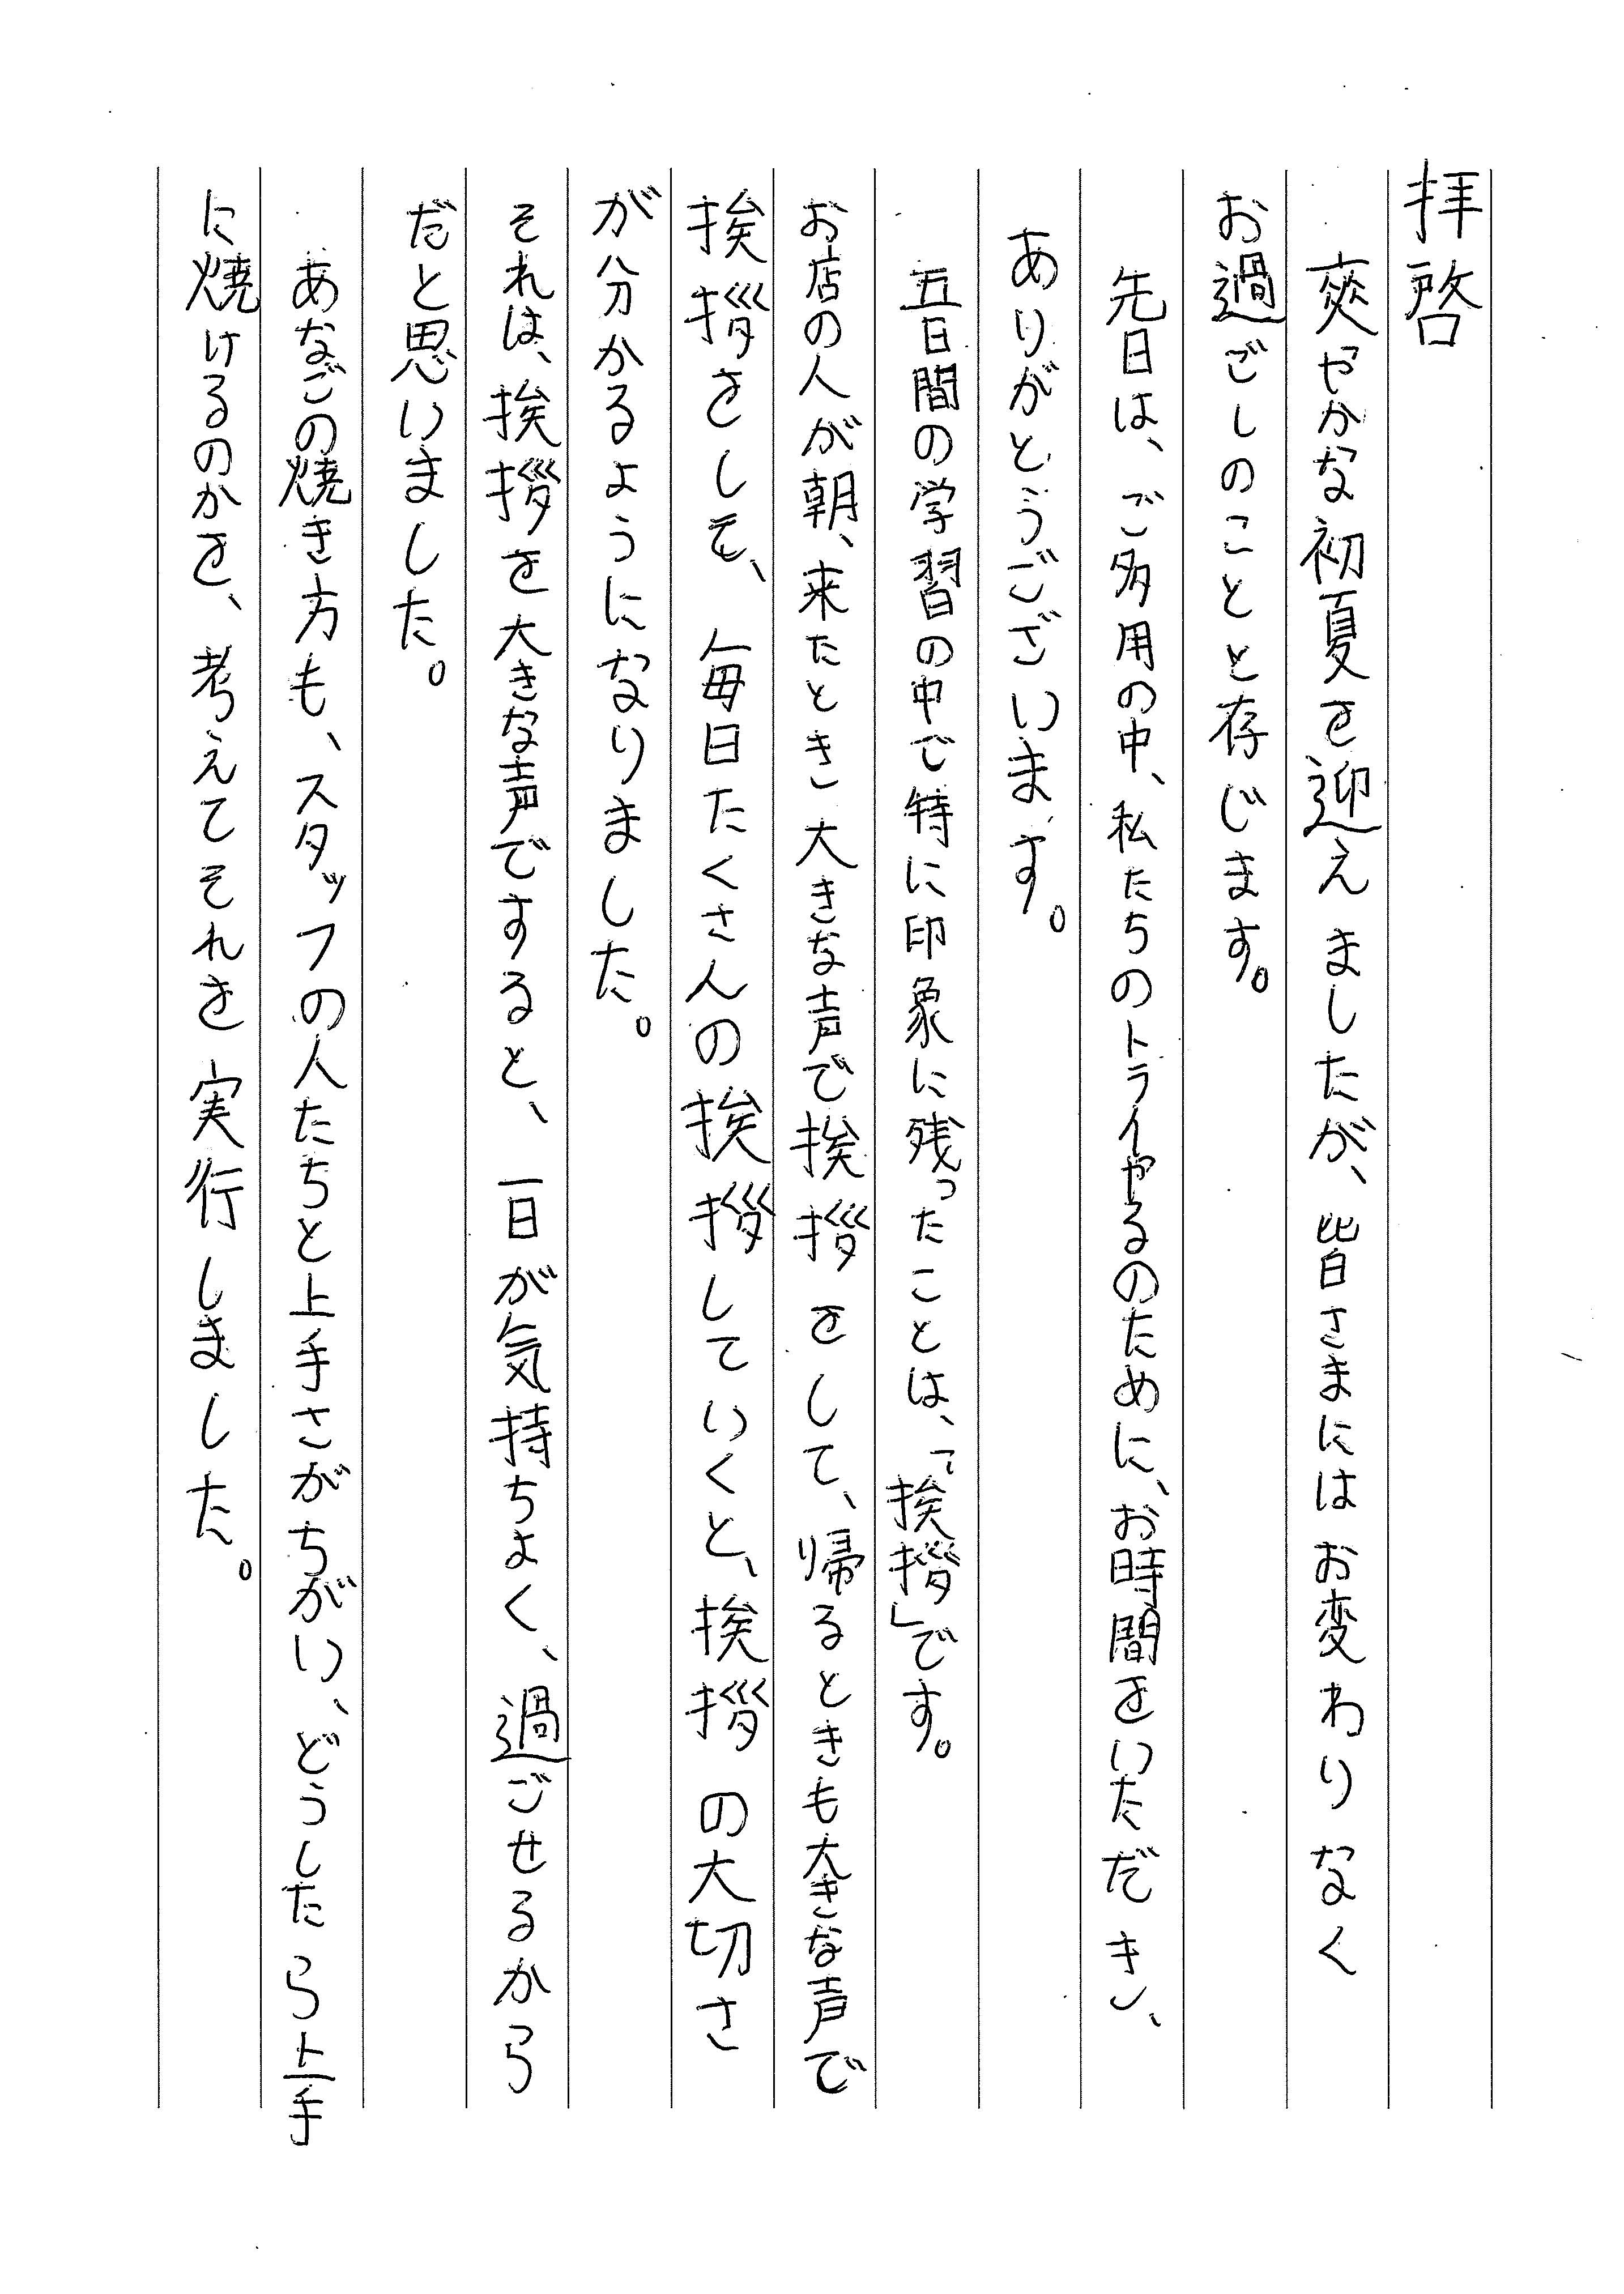 拝啓
爽やかな初夏を迎えましたが、皆さまにはお変わりなく
お過ごしのことと存じます。
先日は、ご多用の中、私たちのトライやるのために、お時間をいただき、
ありがとうございます。
五日間の学習の中で特に印象に残ったことは、「挨拶」です。
お店の人が朝、来たとき大きな声で挨拶をして、帰るときも大きな声で
挨拶をして、毎日たくさんの挨拶していくと、挨拶の大切さ
が分かるようになりました。
それは、挨拶を大きな声ですると、一日が気持ちよく、過ごせるから
だと思いました。
あなごの焼き方も、スタッフの人たちと上手さがちがい、どうしたら上手
に焼けるのかを、考えてそれを実行しました。